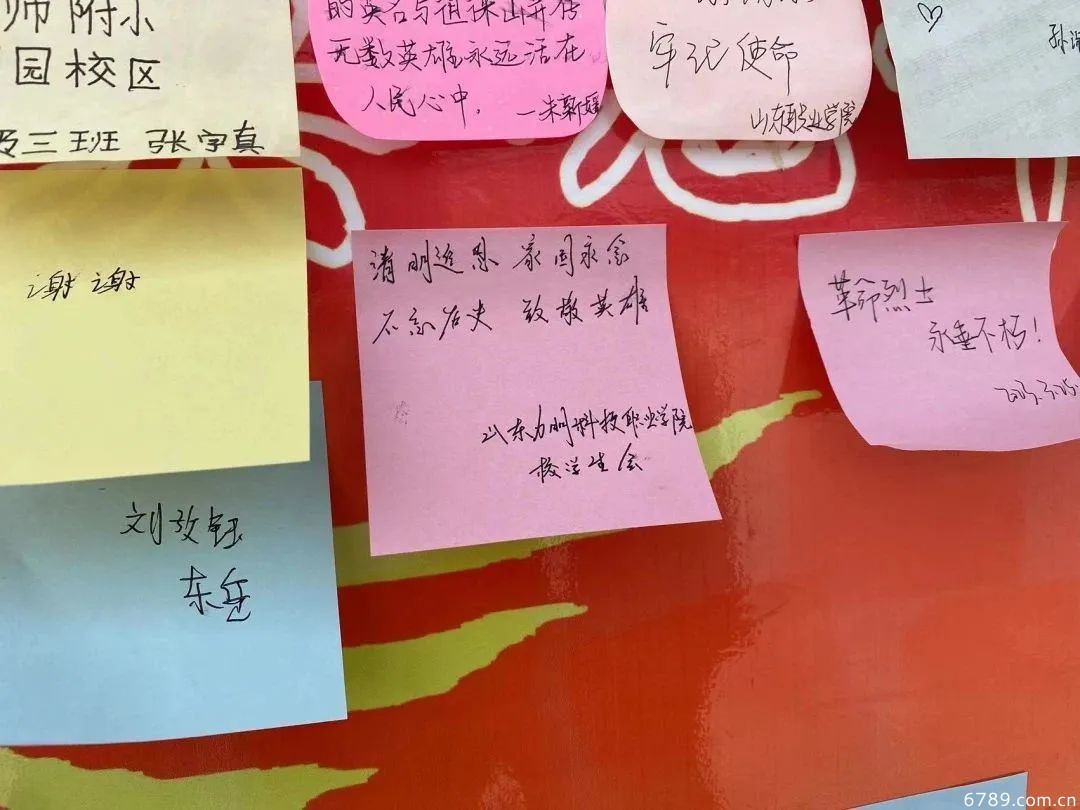 师附小
园校区
三班 张宇真
的英名与祖诔山并传
无数英雄永远活在
人民心中。
一朱新媛
牢记使命
山东职业学院
谢谢
清明追思 家国永念
不忘历史 致敬英雄
山东力明科技职业学院
校学生会
革命烈士
永垂不朽!
刘孜钰
东岳
6789.com.cn